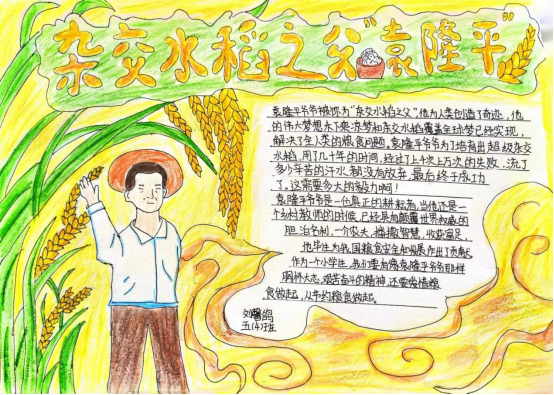 杂交水稻之父"袁隆平"
袁隆平爷爷被称为"杂交水稻之父",他为人类创造了奇迹,他
的伟大梦想禾下乘凉梦和杂交水稻覆盖全球梦已经实现,
解决了全人类的粮食问题。袁隆平爷爷为了培育出超级杂交
水稻,用了几十年的时间,经过了上千次上万次的失败,流了
多少辛苦的汗水都没有放弃,最后终于成功
了,这需要多大的毅力啊!
袁隆平爷爷是一位真正的耕耘者,当他还是一
个乡村教师的时候,已经具有颠覆世界权威的
胆,淡泊名利,一介农夫,播撒智慧,收获富足。
他毕生为我国粮食安全和发展作出了贡献,
作为一个小学生,我们要向像袁隆平爷爷那样
胸怀大志,艰苦奋斗的精神,还要珍惜粮
食做起,从节约粮食做起。
刘鸽
五(4)班